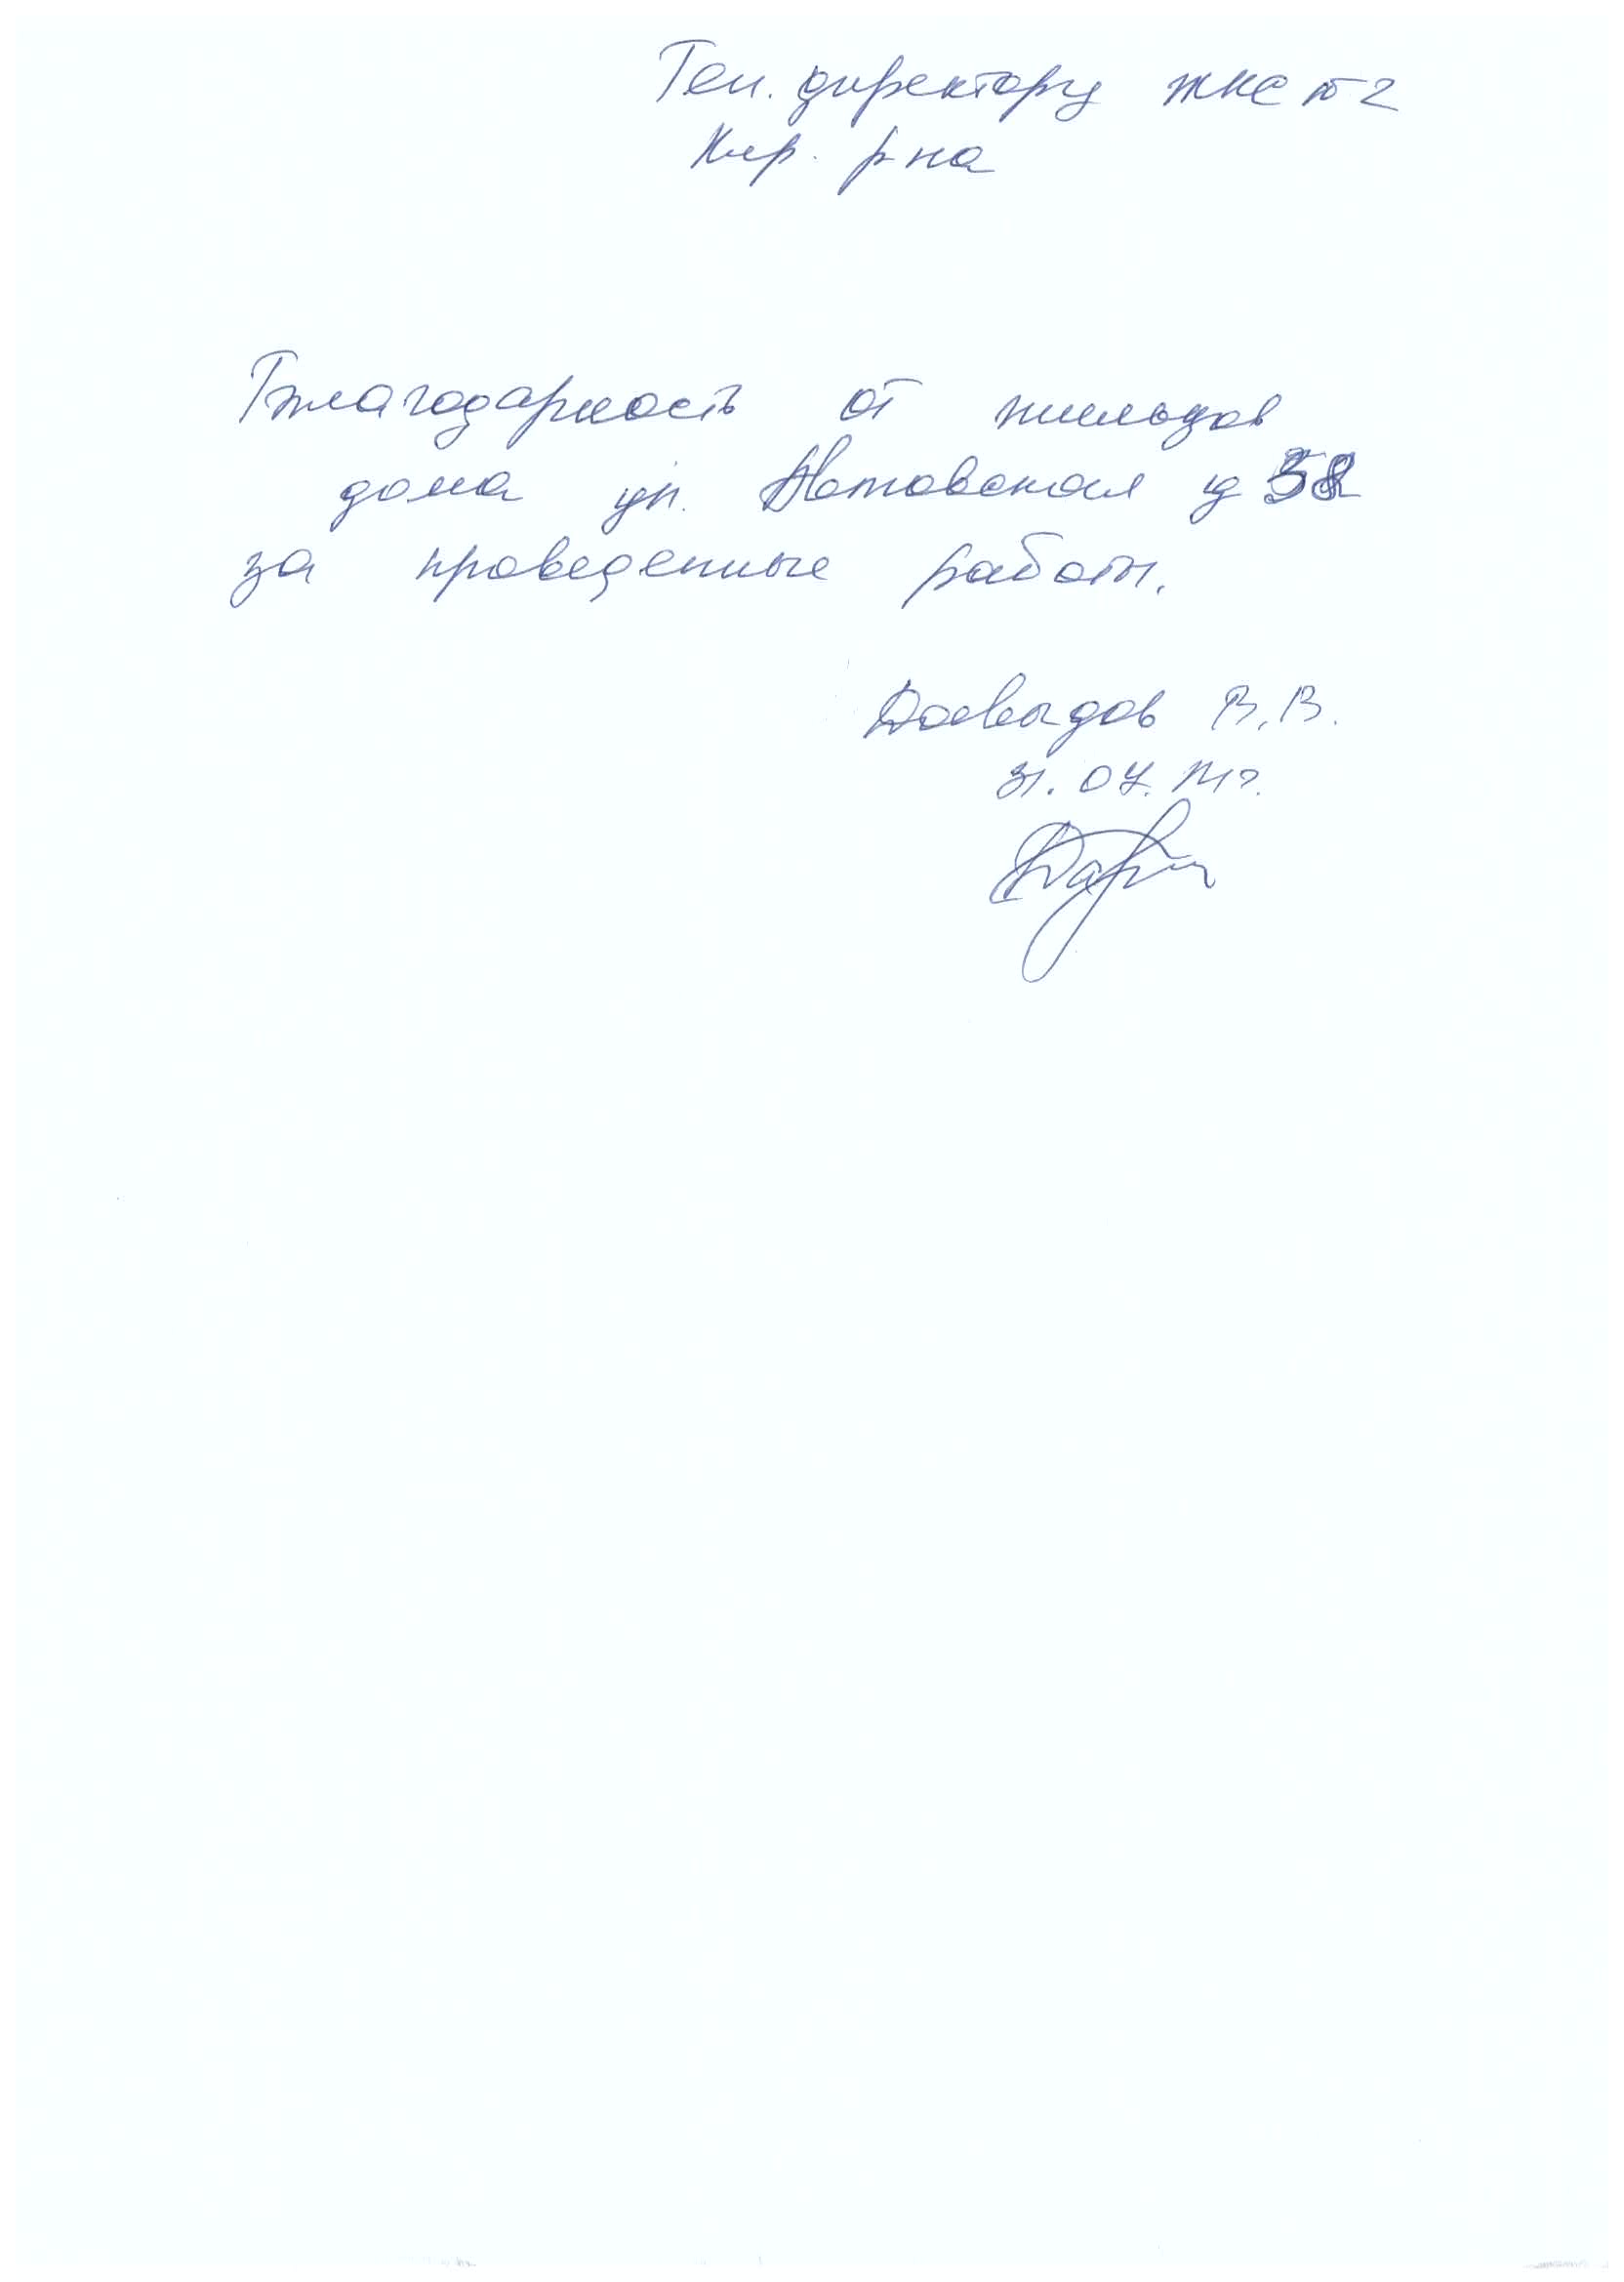 Ген. директору ЖКС №2
Кир. р-на
Благодарность от жильцов
дома ул. Автовская д 38
за проведенные работы.
Давыдов В.В.
31.07.14г.